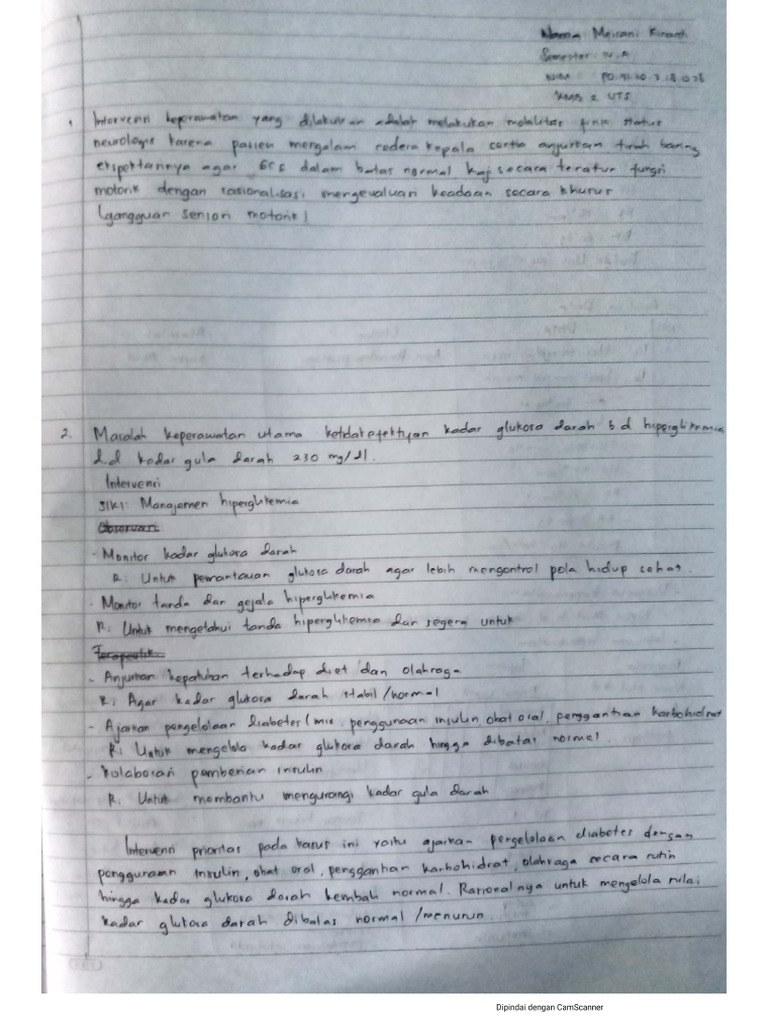 Nama : Meirani Kinanti
Semester : IV.A
NIM : PO.71.20.3.18.078
KMB 2 UTS
1. Intervensi keperawatan yang dilakukan adalah melakukan mobilitas fisik status
neurologis karena pasien mengalam cedera kepala serta anjurkan tirah baring
ekspektasinya agar GCS dalam batas normal kaji secara teratur fungsi
motorik dengan rasionalisasi mengevaluasi keadaan secara khusus
(gangguan sensori motorik)
2. Masalah keperawatan utama ketidakefektifan kadar glukosa darah b d hiperglikemia
d.d kadar gula darah 230 mg/dl.
Intervensi
SIKI: Manajemen hiperglikemia
Observasi
- Monitor kadar glukosa darah
R: Untuk pemantauan glukosa darah agar lebih mengontrol pola hidup sehat.
- Monitor tanda dan gejala hiperglikemia
R: Untuk mengetahui tanda hiperglikemia dan segera untuk
Terapeutik
- Anjurkan kepatuhan terhadap diet dan olahraga
R: Agar kadar glukosa darah stabil/normal
- Ajarkan pengelolaan diabetes (mis. penggunaan insulin, obat oral, penggantian karbohidrat
R: Untuk mengelola kadar glukosa darah hingga dibatas normal.
- Kolaborasi pemberian insulin
R: Untuk membantu mengurangi kadar gula darah
Intervensi prioritas pada kasus ini yaitu ajarkan pengelolaan diabetes dengan
penggunaan insulin, obat oral, penggantian karbohidrat, olahraga secara rutin
hingga kadar glukosa darah kembali normal. Rasionalnya untuk mengelola nilai
kadar glukosa darah dibatas normal/menurun.
Dipindai dengan CamScanner